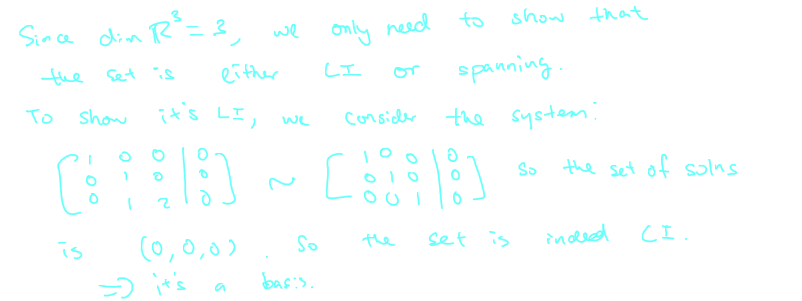 Since dim ℝ³ = 3, we only need to show that
the set is either LI or spanning.
To show it's LI, we consider the system:
[1 0 0 | 0; 0 1 0 | 0; 0 1 2 | 0] ~ [1 0 0 | 0; 0 1 0 | 0; 0 0 1 | 0] so the set of solns
is (0,0,0). So the set is indeed LI.
⇒ it's a basis.